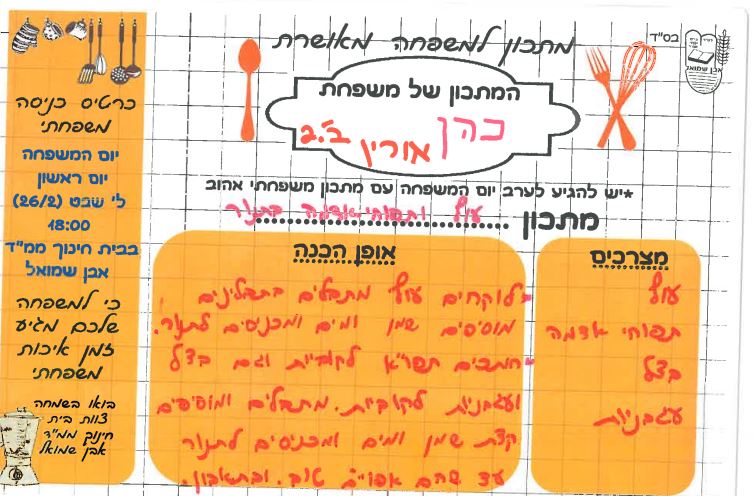 בס"ד
אבן שמואל
מתכון למשפחה מאושרת
המתכון של משפחת
כהן
אורין ב'.2
*יש להגיע לערב יום המשפחה עם מתכון משפחתי אהוב
מתכון עוף ותפוחי אדמה בתנור
מצרכים
עוף
תפוחי אדמה
בצל
עגבניות
אופן הכנה
-לוקחים עוף מתבלים בתבלינים
מוסיפים שמן ומים ומכניסים לתנור.
-חותכים תפו"א לקוביות וגם בצל
ועגבניות לקוביות. מתבלים ומוסיפים
קצת שמן ומים ומכניסים לתנור
עד שהם אפויים טוב. ובתאבון.
כרטיס כניסה
משפחתי
יום המשפחה
יום ראשון
ל' שבט (26/2)
18:00
בבית חינוך ממ"ד
אבן שמואל
כי למשפחה
שלכם מגיע
זמן איכות
משפחתי
בואו בשמחה
צוות בית
חינוך ממ"ד
אבן שמואל